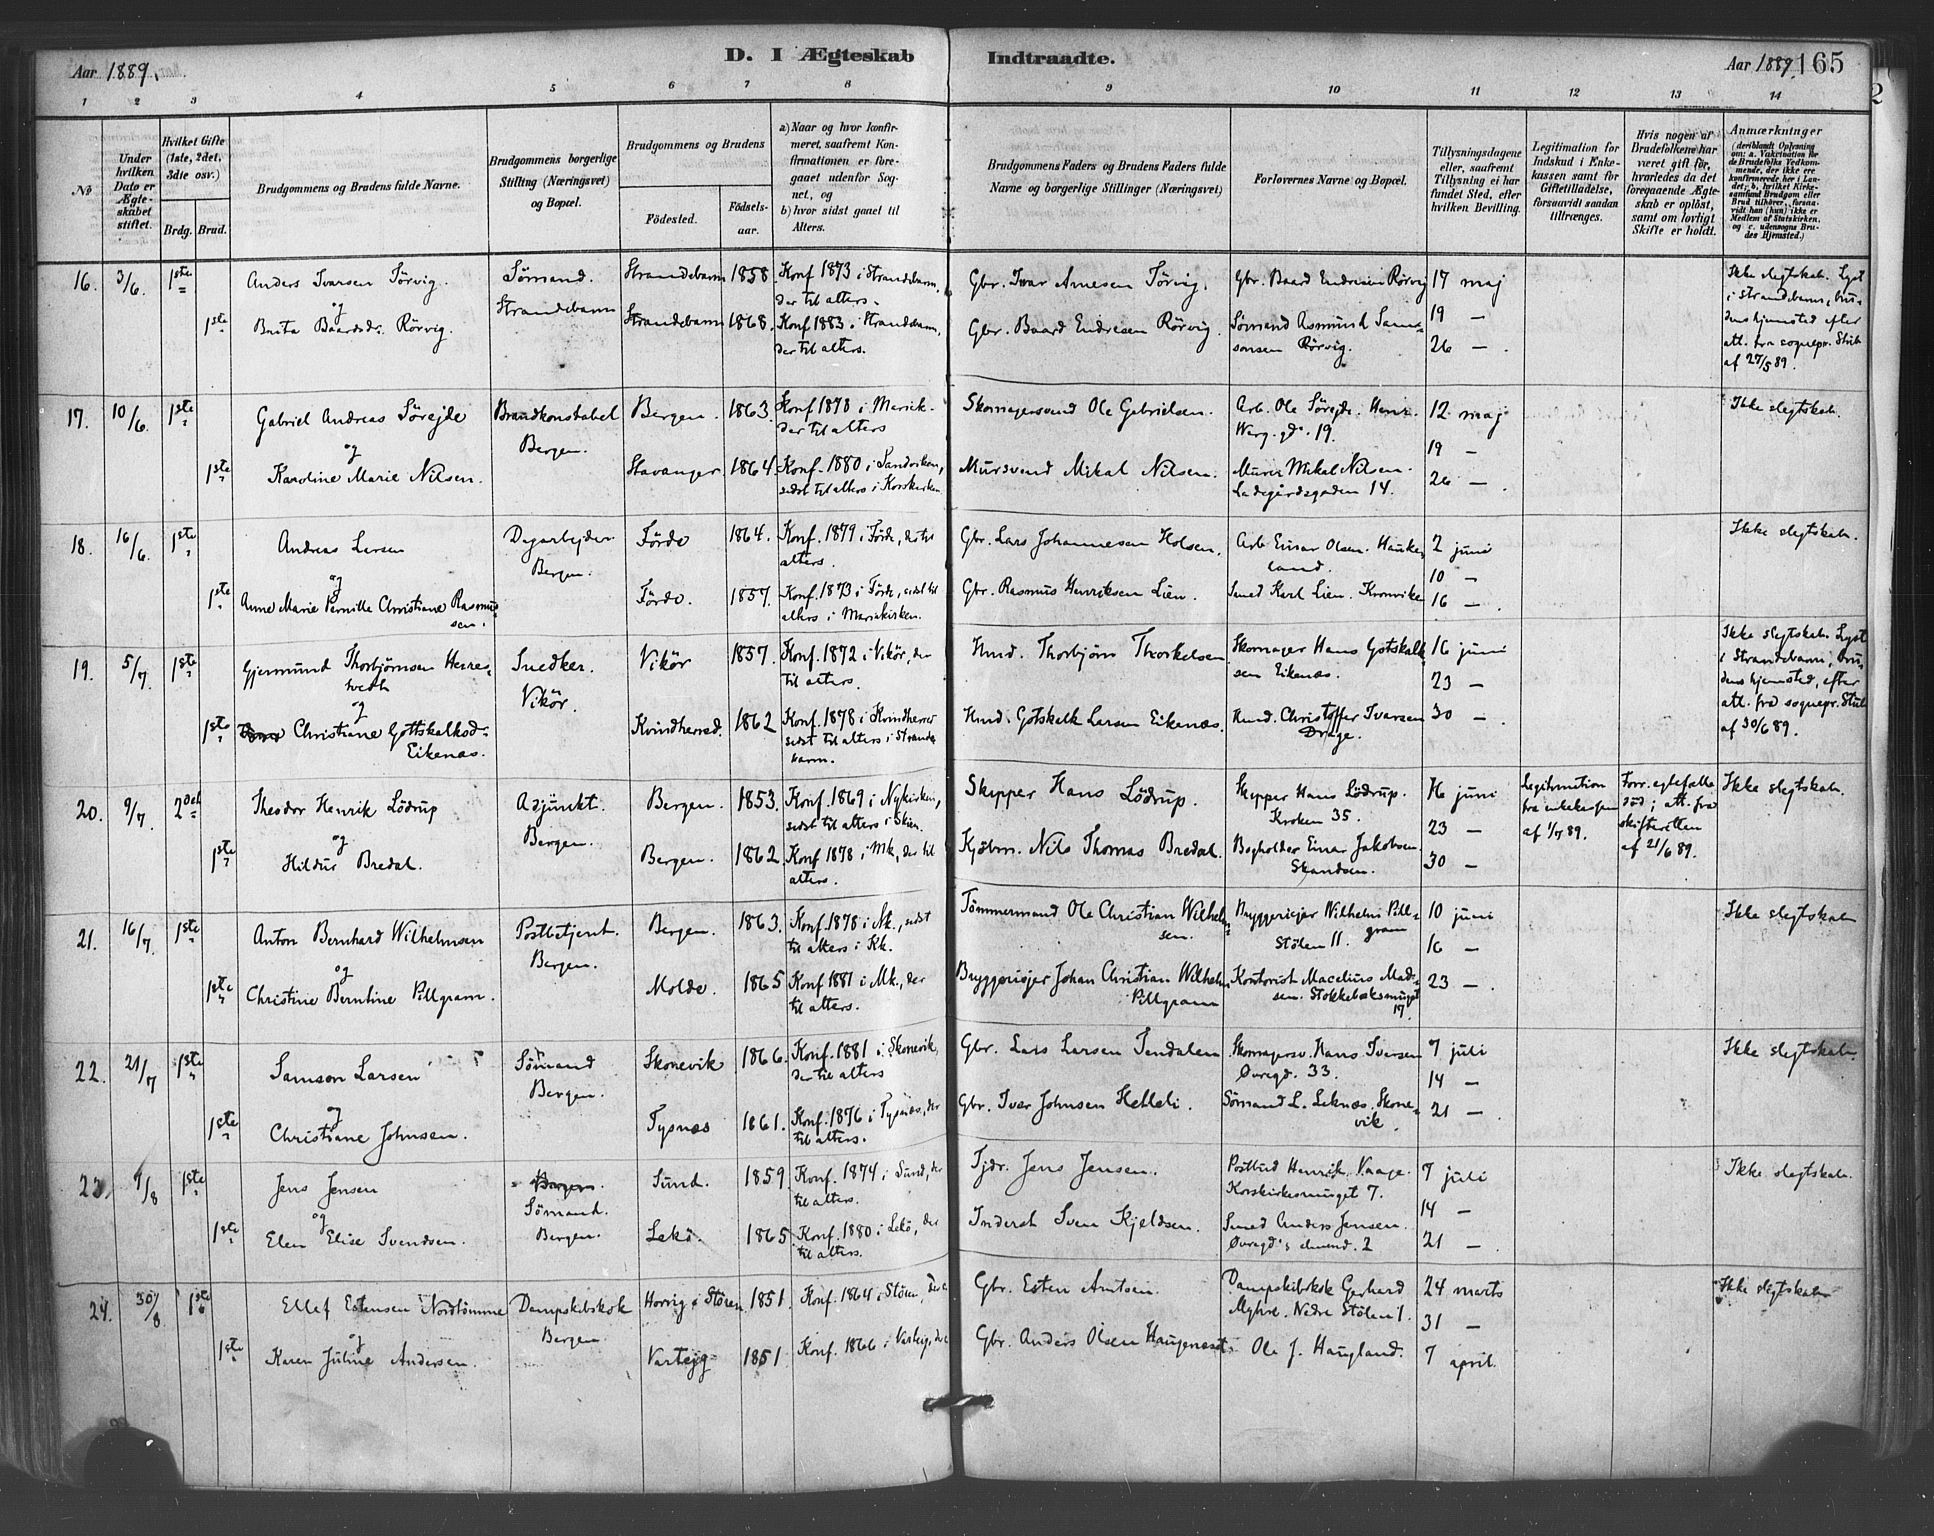 Aar 1889.
D. I Ægteskab Indtraadte.
Aar 1889.
165
1 2 3 4 5 6 7 8 9 10 11 12 13 14
No
Under hvilken Dato er Ægteskabet stiftet.
Hvilket Gifte (1ste, 2det, 3die osv.)
Brdg. Brud.
Brudgommens og Brudens fulde Navne.
Brudgommens borgerlige Stilling (Næringsvei) og Bopæl.
Brudgommens og Brudens
Födested. Födselsaar.
a) Naar og hvor konfirmeret, saafremt Konfirmationen er foregaaet udenfor Sognet, og
b) hvor sidst gaaet til Alters.
Brudgommens Faders og Brudens Faders fulde Navne og borgerlige Stillinger (Næringsvei)
Forlovernes Navne og Bopæl.
Tillysningsdagene eller, saafremt Tillysning ei har fundet Sted, efter hvilken Bevilling.
Legitimation for Indskud i Enkekassen samt for Giftetilladelse, forsaavidt saadan tiltrænges.
Hvis nogen af Brudefolkene har været gift för, hvorledes da det foregaaende Ægteskab er oplöst, samt om lovligt Skifte er holdt.
Anmærkninger
(deriblandt Oplysning om: a. Vakcination for de Brudefolks Vedkommende, der ikke ere konfirmerede her i Landet; b. hvilket Kirkesamfund Brudgom eller Brud tilhörer, forsaavidt han (hun) ikke er Medlem af Statskirken, og c. udensogns Brudes Hjemsted.)
16. 3/6. 1ste Anders Ivarsen Törvig. Sömand. Strandebarm 1858. Konf. 1873 i Strandebarm, der til alters. Gbr. Ivar Arnesen Törvig. Gbr. Baard Endresen Rörvig 17 maj
og Strandebarm 19 —
1ste Brita Baardsdr. Rörvig. Strandebarm 1868. Konf. 1883 i Strandebarm, der til alters. Gbr. Baard Endresen Rörvig. Sömand Asmund Samsonsen Rörvig. 26 —.
Ikke slegtskab. Lyst i Strandebarm, brudens hjemsted efter att. fra sognepr. Stub af 27/5 89.
17. 10/6. 1ste Gabriel Andreas Sörejde Brandkonstabel Bergen. Bergen. 1863 Konf. 1878 i Mariek. der til alters Skomagersvend Ole Gabrielsen. Arb. Ole Sörejde. 19. 12 maj Ikke slegtskab.
og 19 —
1ste Karoline Marie Nilsen. Stavanger. 1864. Konf. 1880 i Sandviken, sidst til alters i Korskirken. Mursvend Mikal Nilsen. Murer Mikal Nilsen. Ladegårdsgaden 14. 26 —.
18. 16/6. 1ste Andreas Larsen Dagarbejder Bergen. Förde 1864. Konf. 1879 i Förde, der til alters. Gbr. Lars Johannesen Holsen. Arb. Einar Olsen. Haukeland. 2 juni Ikke slegtskab.
og 10 —
1ste Anne Marie Pernille Christiane Rasmussen. Förde. 1857. Konf. 1873 i Förde, sidst til alters i Mariakirken. Gbr. Rasmus Henriksen Lien. Smed Karl Lien. Kronviken 16 —.
19. 5/7. 1ste Gjermund Thorbjörnsen Snedker. Vikör. Vikör 1857. Konf. 1872 i Vikör, der til alters. Hmd. Thorbjörn Thorkelsen Skomager Hans Gotskalksen Eikenæs. 16 juni
og 23 —
1ste Christiane Gottskalksd. Eikenæs. Kvindherred. 1862 Konf. 1878 i Kvindherred sidst til alters i Strandebarm. Hmd. Gotskalk Larsen Eikenæs. Hmd. Christoffer Ivarsen Drage. 30 —.
Ikke slegtskab. Lyst i Strandebarm, brudens hjemsted, efter att. fra sognepr. Stub af 30/6 89.
20. 9/7. 2det Theodor Henrik Lödrup Adjunkt. Bergen. Bergen. 1853. Konf. 1869 i Nykirken, sidst til alters i Skien. Skipper Hans Lödrup. Skipper Hans Lödrup. Kroken 35. 16 juni Legitimation fra enkekassen af 1/7 89. Forr. egtefælle död; att. fra skifteretten af 21/6 89. Ikke slegtskab.
og 23 —
1ste Hildur Bredal. Bergen. 1862. Konf. 1878 i Mk, der til alters. Kjöbm. Nils Thomas Bredal. Bogholder Einar Jakobsen. 30 —
21. 16/7. 1ste Anton Bernhard Wilhelmsen Postbetjent. Bergen. Bergen. 1863. Konf. 1878 i Nk., sidst til alters i Kk. Tömmermand Ole Christian Wilhelmsen. Bryggeriejer Wilhelm Pillgram Stölen 11. 10 juni Ikke slegtskab
og 16 —
1ste Christine Berntine Pillgram. Molde. 1865 Konf. 1881 i Mk., der til alters. Bryggeriejer Johan Christian Wilhelm Pillgram Kontorist Madsen. Stokkebæksmuget 17. 23 —.
22. 21/7 1ste Samson Larsen Sömand Bergen. Skonevik 1866. Konf. 1881 i Skonevik, der til alters Gbr. Lars Larsen Tendalen Skomagersv. Hans Iversen Øvregd. 33. 7 juli Ikke slegtskab.
og 14 —
1ste Christiane Johnsen. Tysnæs 1861. Konf. 1876 i Tysnæs, der til alters. Gbr. Ivar Johnsen Helleli. Sömand L. Leknæs. Skonevik. 21 —.
23. 9/8 1ste Jens Jensen Sömand. Bergen. Sund. 1859. Konf. 1874 i Sund, der til alters. Jens Jensen. Postbud Henrik Vaage. Korskirkesmuget 7. 7 juli Ikke slegtskab.
og 14 —
1ste Elen Elise Svendsen. Lekö. 1865. Konf. 1880 i Lekö, der til alters. Inderst Sven Kjeldsen. Smed Anders Jensen. 21 —.
24. 30/8 1ste Ellef Estensen Nordtömme Dampskibskok Bergen. Horvig i Stören 1851. Konf. 1864 i Stören, Gbr. Esten Arntsen. Dampskibskok Gerhard Myhre. Nedre Stölen 1. 24 marts Ikke slegtskab
og 31 —
1ste Karen Juline Andersen. Varteig 1851. Konf. 1866 i Varteig, Gbr. Anders Olsen Haugenæset. Ole J. Haugland. 7 april.